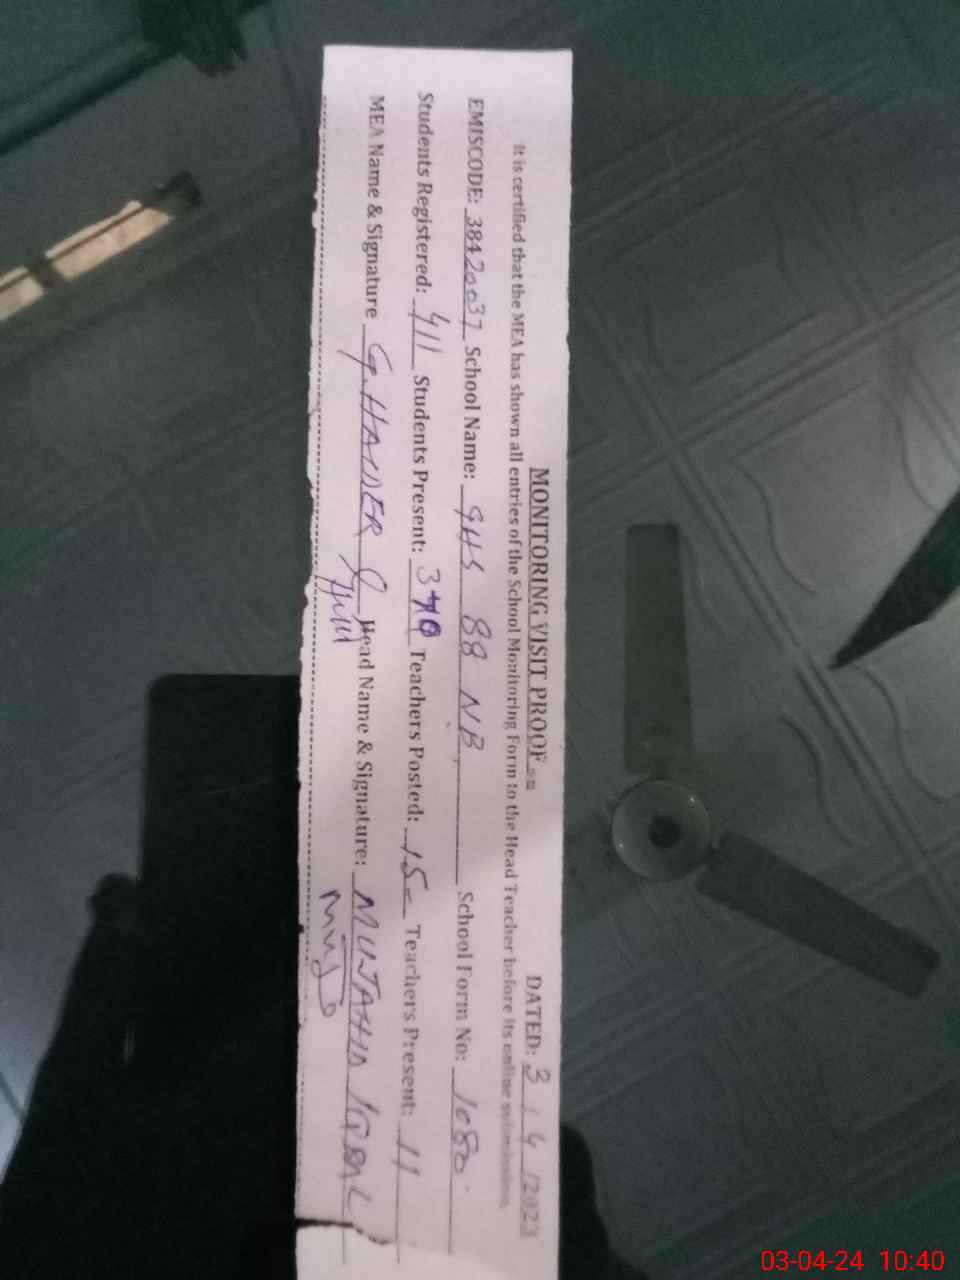 MONITORING VISIT PROOF DATED: 3 / 4 /2023
It is certified that the MEA has shown all entries of the School Monitoring Form to the Head Teacher before its online submission.
EMISCODE: 38420037 School Name: GHS 88 NB School Form No: 1080
Students Registered: 411 Students Present: 370 Teachers Posted: 15 Teachers Present: 11
MEA Name & Signature G. HAIDER Head Name & Signature: MUJAHID IQBAL
03-04-24 10:40